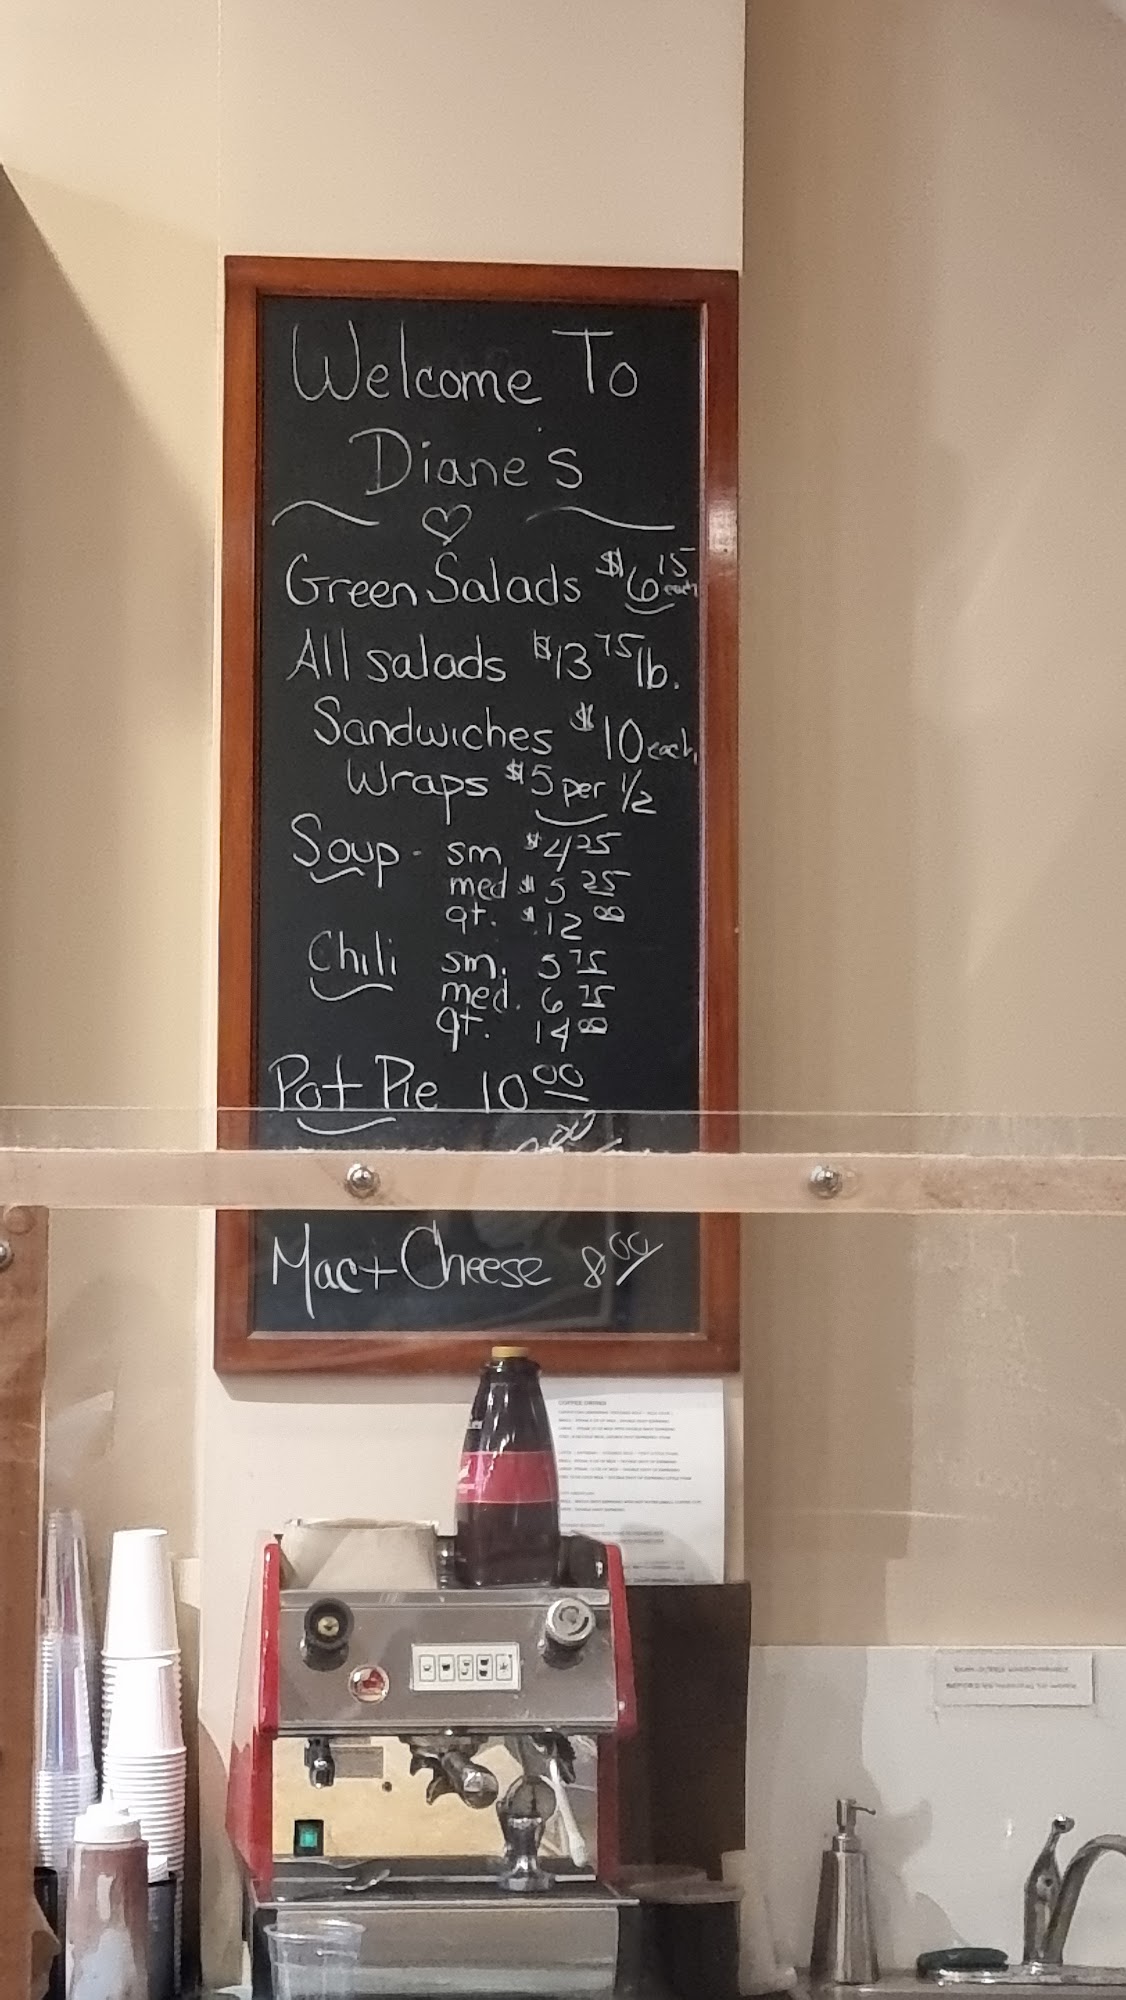 Welcome To
Diane's
Green Salads $6 15 each
All salads $13 75 lb.
Sandwiches $10 each
Wraps $5 per 1/2
Soup - sm $4 25
med $5 25
qt. $12 00
Chili sm. 5 75
med. 6 75
qt. 14 00
Pot Pie 10 00
Mac + Cheese 8 00
COFFEE DRINKS